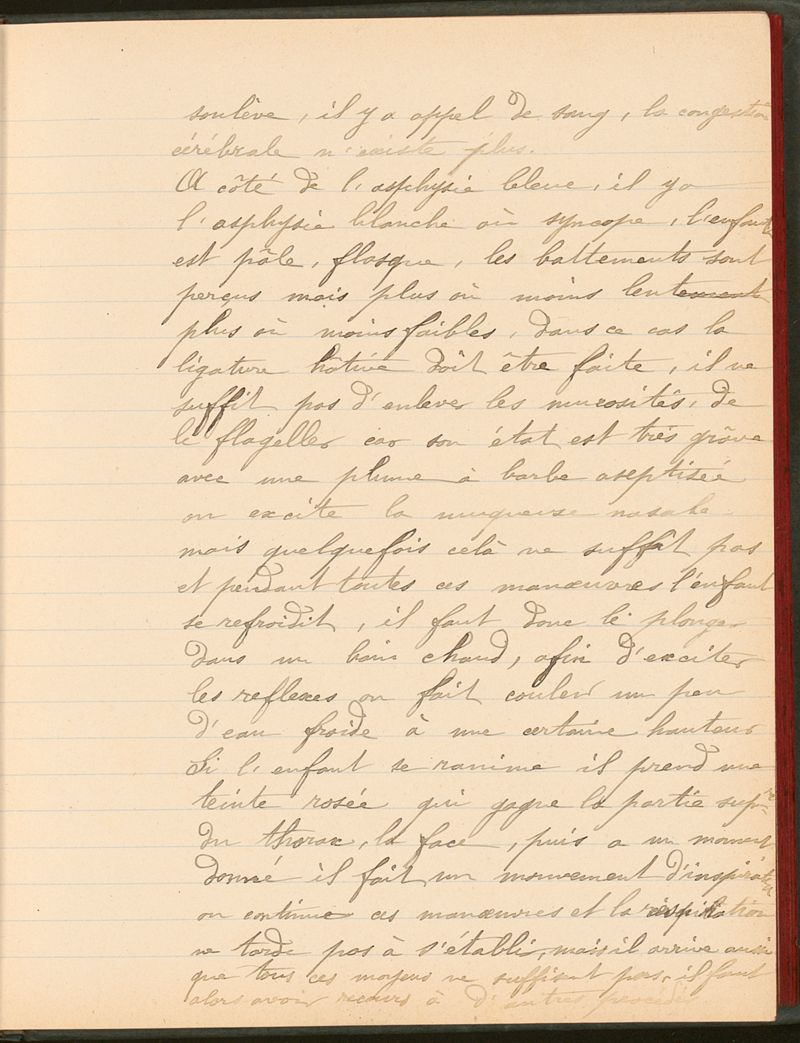 soulève, il y a appel de sang, la congestion
cérébrale n'existe plus.
A côté de l'asphyxie bleue, il y a
l'asphyxie blanche où syncope, l'enfant
est pâle, flasque, les battements sont
perçus mais plus où moins lentement
plus où moins faibles, dans ce cas la
ligature hâtive doit être faite, il ne
suffit pas d'enlever les mucosités, de
le flageller car son état est très grâve
avec une plume à barbe aseptisée
on excite la muqueuse nasale
mais quelquefois celà ne suffit pas
et pendant toutes ces manœuvres l'enfant
se refroidit, il faut donc le plonger
dans un bain chaud, afin d'exciter
les reflexes on fait couler un peu
d'eau froide à une certaine hauteur
Si l'enfant se ranime il prend une
teinte rosée qui gagne la partie supre
du thorax, la face, puis a un moment
donné il fait un mouvement d'inspiration
on continue ces manœuvres et la respiration
ne tarde pas à s'établir, mais il arrive aussi
que tous ces moyens ne suffisent pas, il faut
alors avoir recours à d'autres procédés